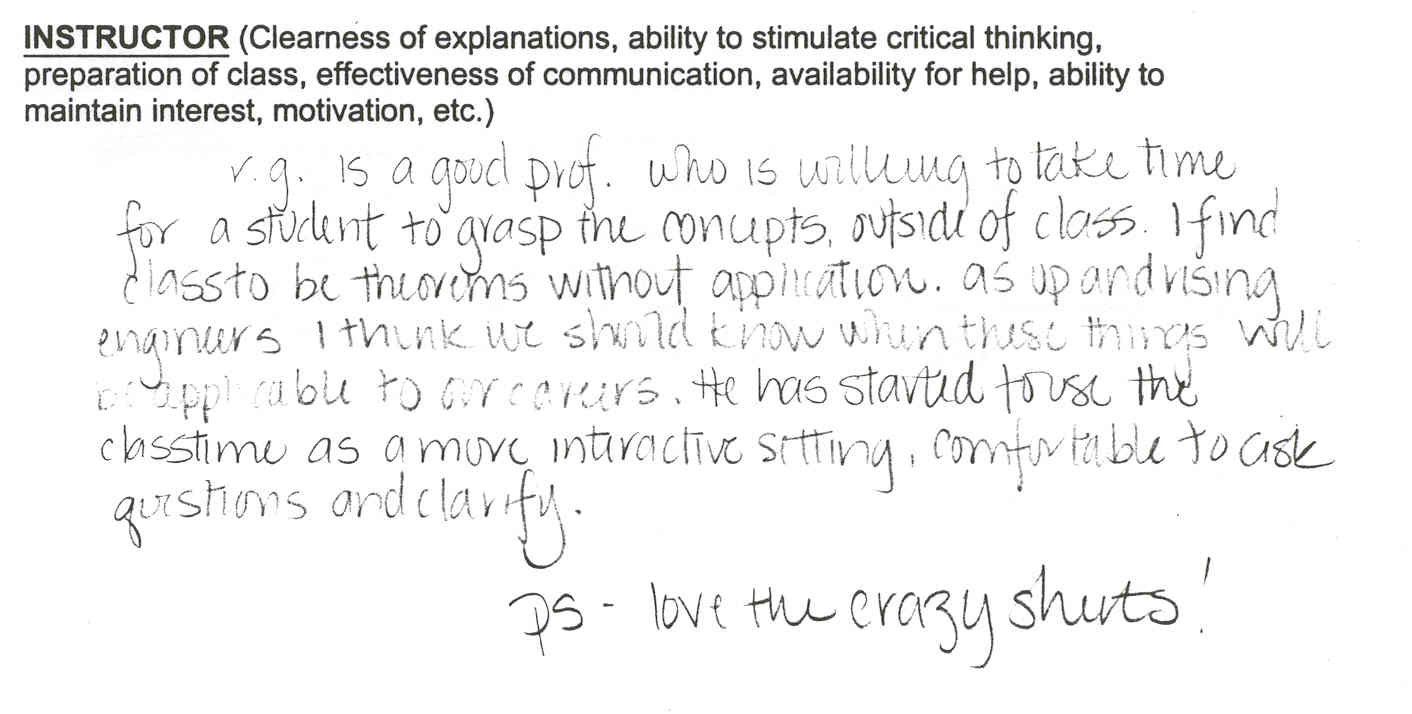 INSTRUCTOR (Clearness of explanations, ability to stimulate critical thinking,
preparation of class, effectiveness of communication, availability for help, ability to
maintain interest, motivation, etc.)
r.g. is a good prof. who is willing to take time
for a student to grasp the concepts, outside of class. I find
class to be theorems without application. as up and rising
engineers I think we should know when these things will
be applicable to our careers. He has started to use the
classtime as a more interactive setting, comfortable to ask
questions and clarify.
ps - love the crazy shirts!